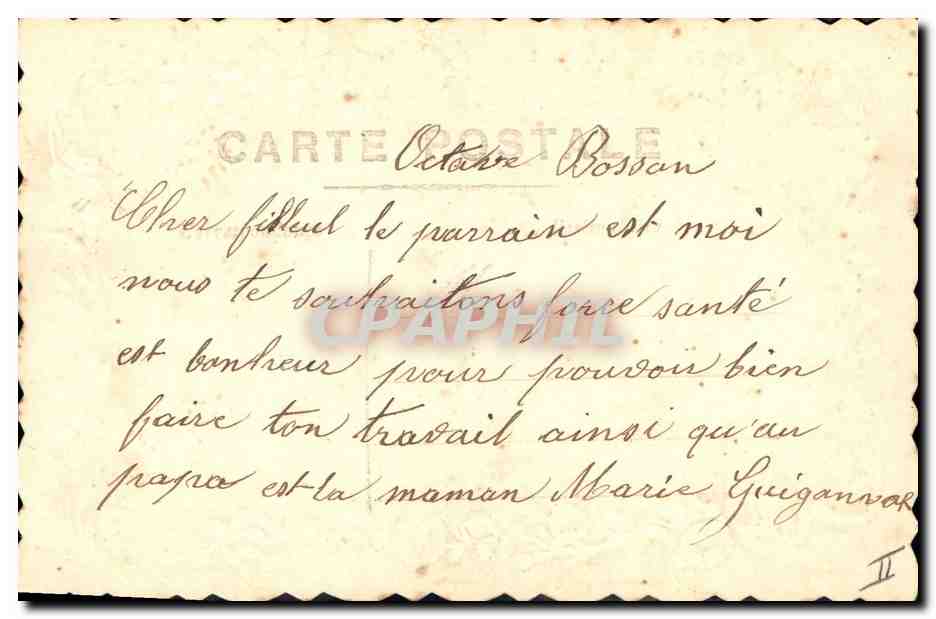 CARTE POSTALE
Octave Bossan
Cher filleul le parrain est moi
nous te souhaitons force santé
CPAPHIL
est bonheur pour pouvoir bien
faire ton travail ainsi qu'au
papa est la maman Marie
II